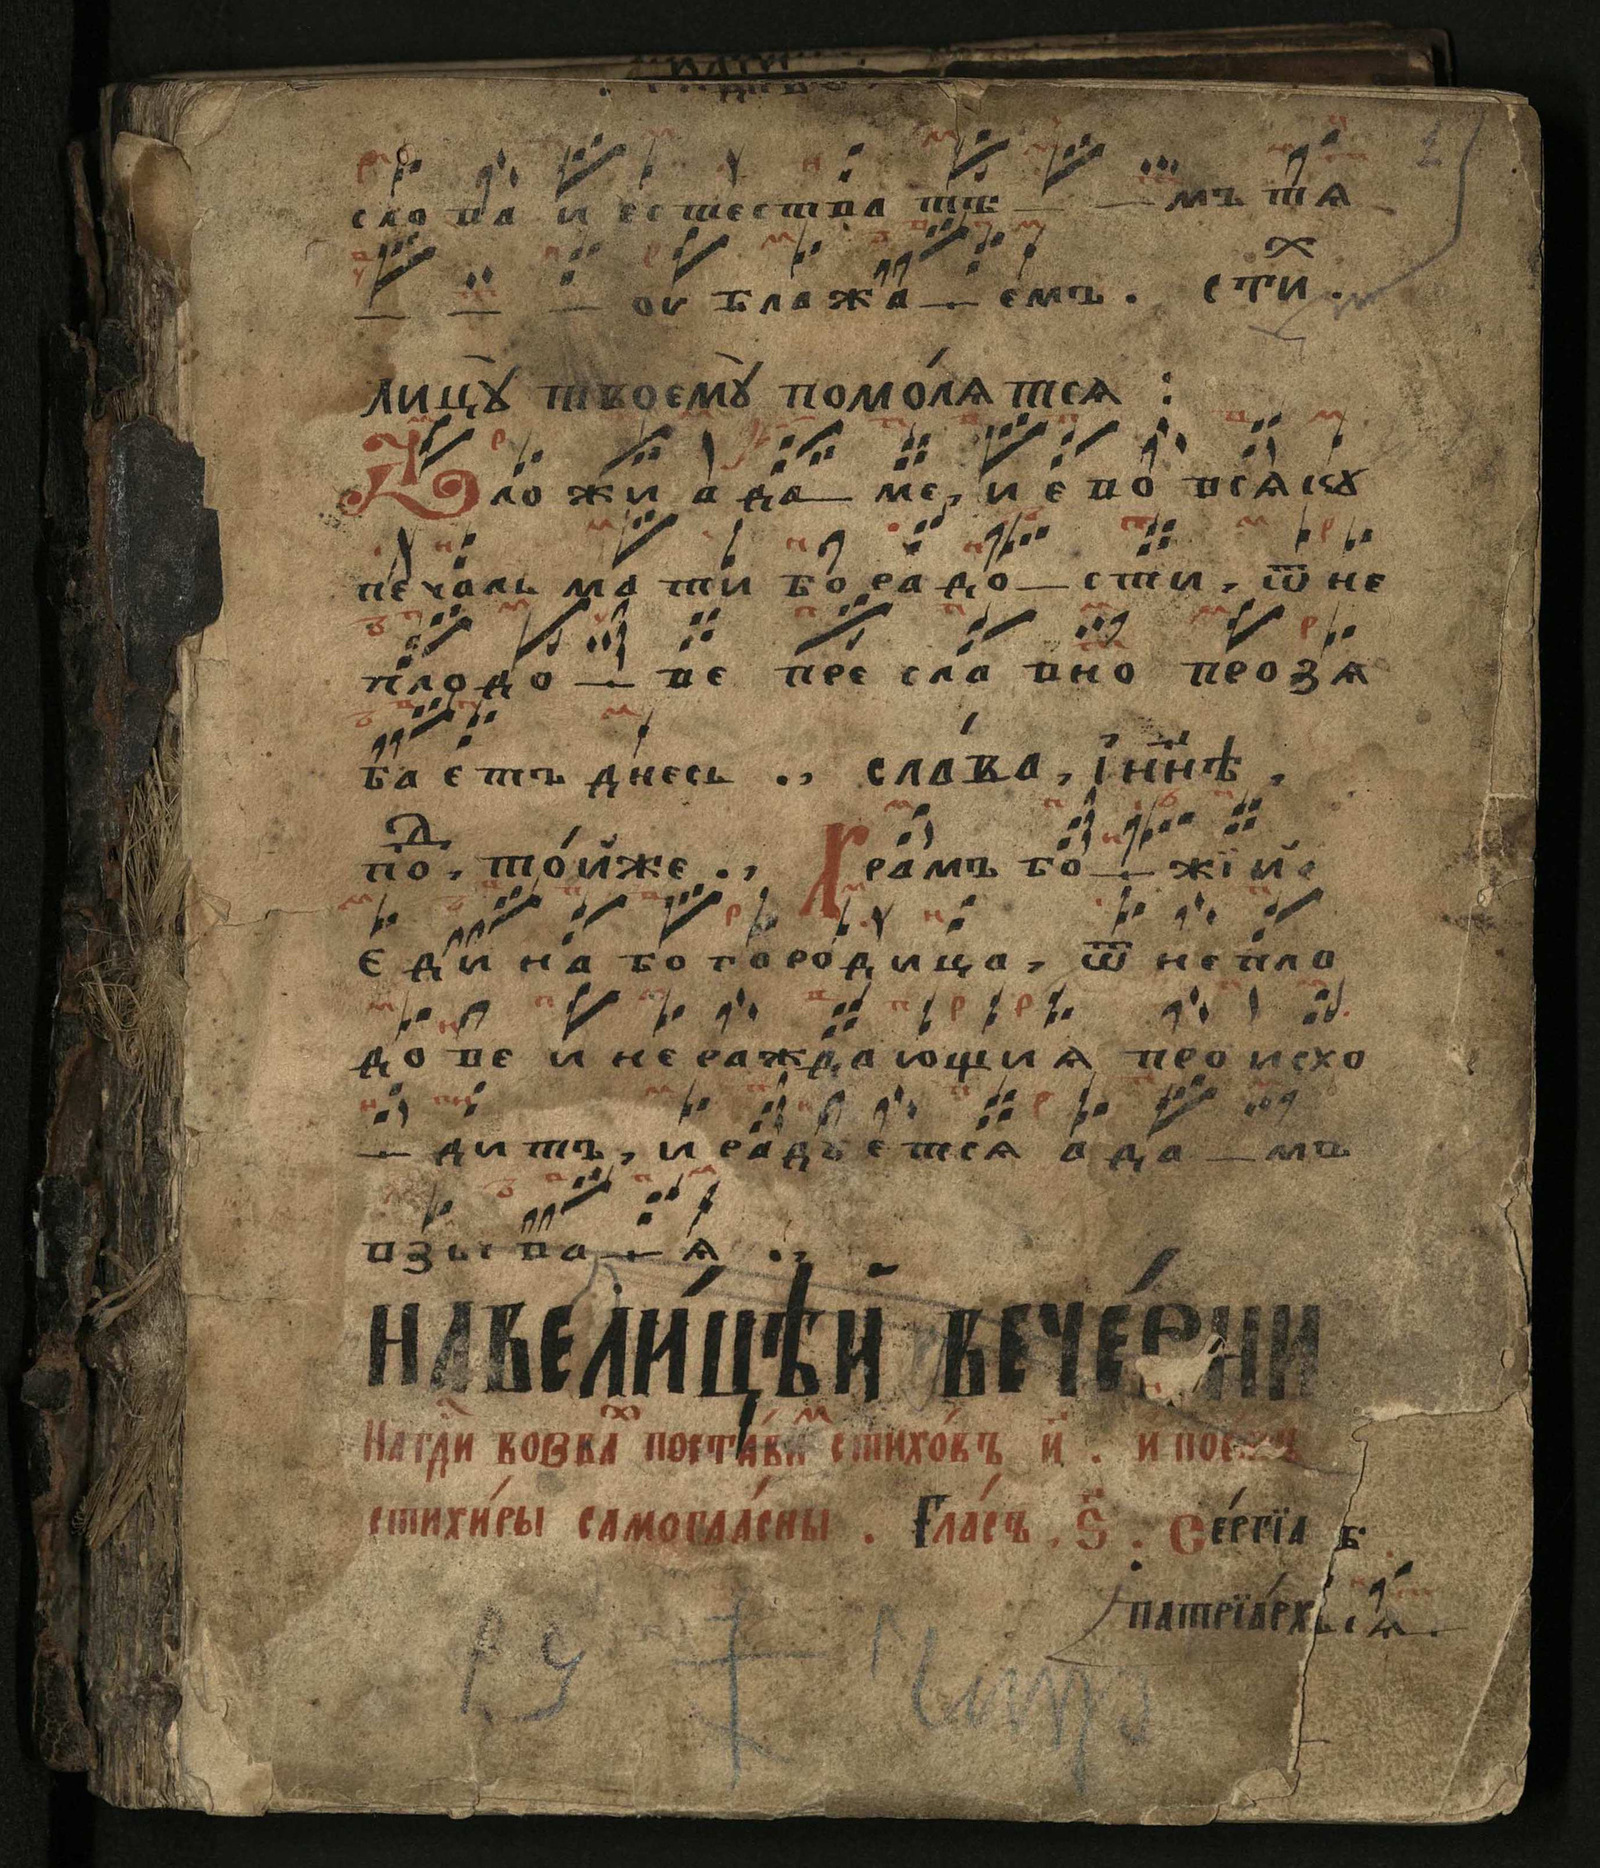 слова и естества тѣ — — мъ тѧ
— — — ои блажа — емъ . стих .
лицꙋ твоемꙋ помо́лѧтсѧ :
Ѿложи ада — ме, и е во всѧкꙋ
печаль мати бо радо — сти, ѿ не
плодо — ве пре сла вно прозѧ
ба етъ днесь ., сла́ва, и҆ ны́нѣ ,
под , то́йже ., Храмъ бо — жїй
Еди на богородица, ѿ непло
до ве и нераждающиѧ про исхо
— дитъ, и радꙋетсѧ ада — мъ
взыва — ѧ .,
НАВЕЛИ́ЦѢЙ ВЕЧЕ́РНИ
На гди возвах поста́вим стихо́въ и҃ . и пое́мъ
стихи́ры самогла́сны . Гла́съ . ѕ҃ . Се́ргїа
патрїа́рх